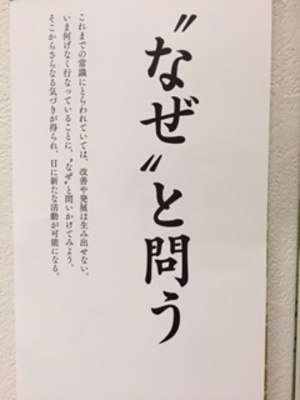 〝なぜ〟と問う
これまでの常識にとらわれていては、改善や発展は生み出せない。
いま何げなく行なっていることに、〝なぜ〟と問いかけてみよう。
そこからさらなる気づきが得られ、日に新たな活動が可能になる。